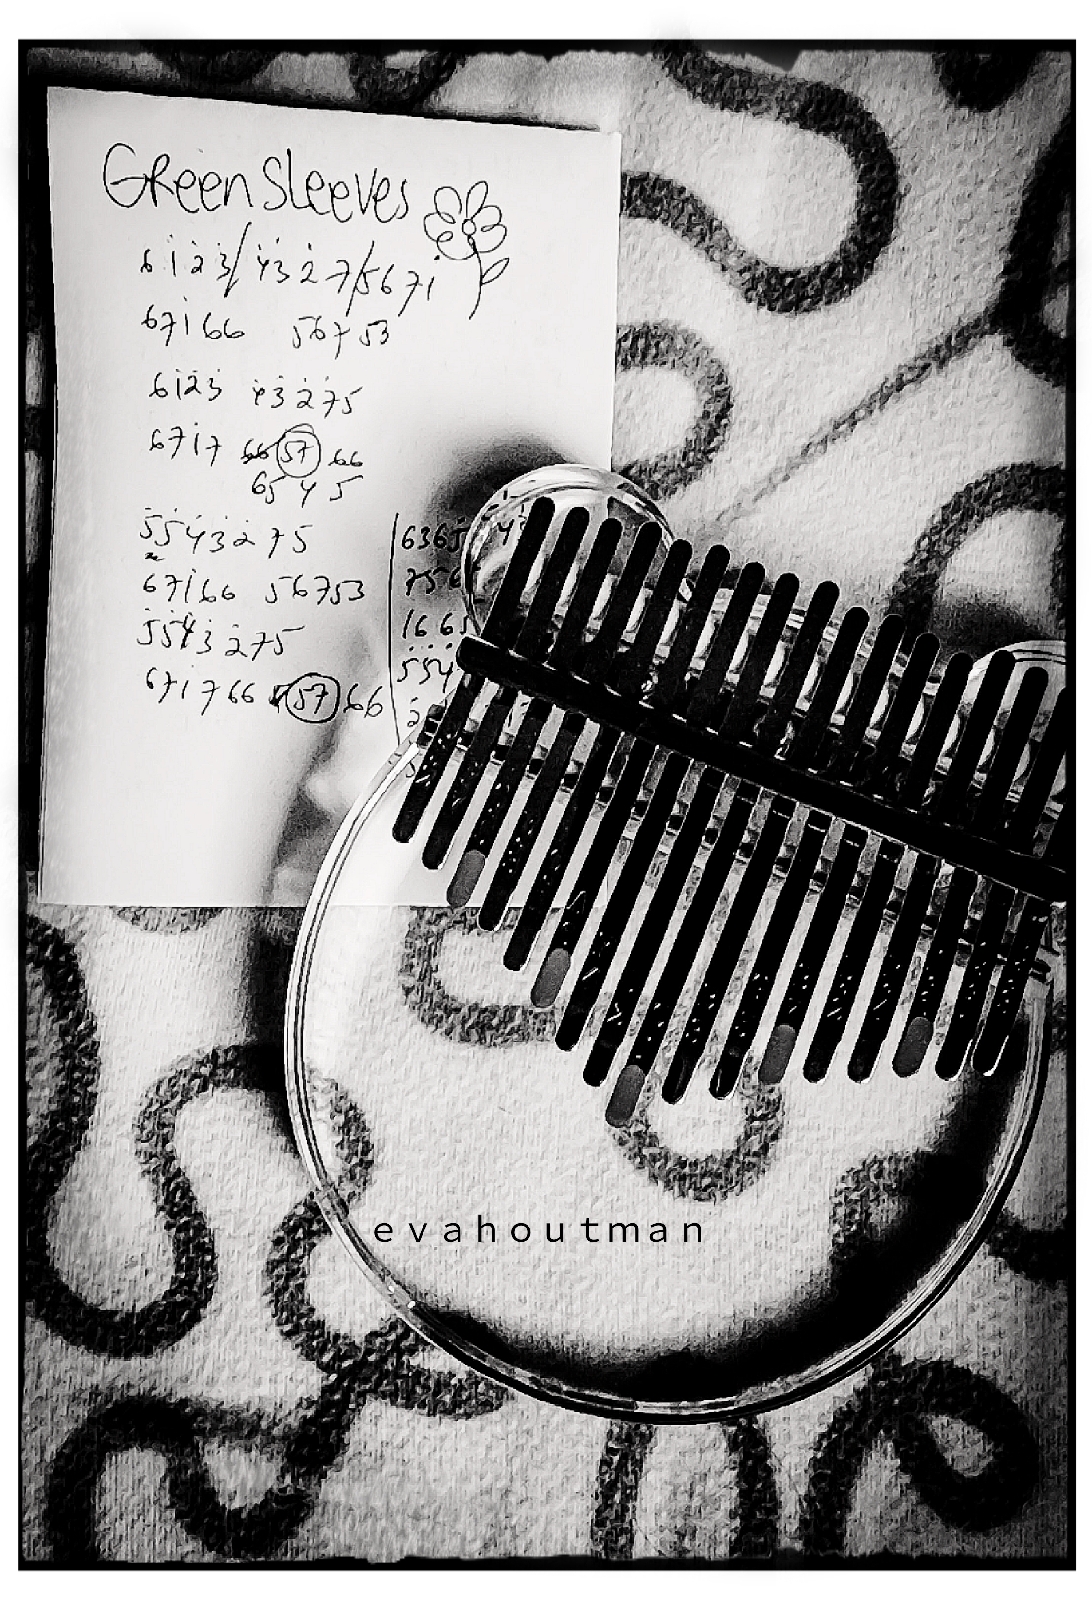 GReenSleeves
6 i 2̇ 3̇/ 4̇ 3̇ 2̇ 7/5 6 7 i
6 7 i 6 6 5 6 7 5 3
6 i 2̇ 3̇ 4̇ 3̇ 2̇ 7 5
6 7 i 7 57 66
65 4 5
5̇ 5̇ 4̇ 3̇ 2̇ 7 5
6 7 i 6 6 5 6 7 5 3
5̇ 5̇ 4̇ 3̇ 2̇ 7 5
6 7 i 7 6 6 57 66
6365
756
1665
554
2
evahoutman